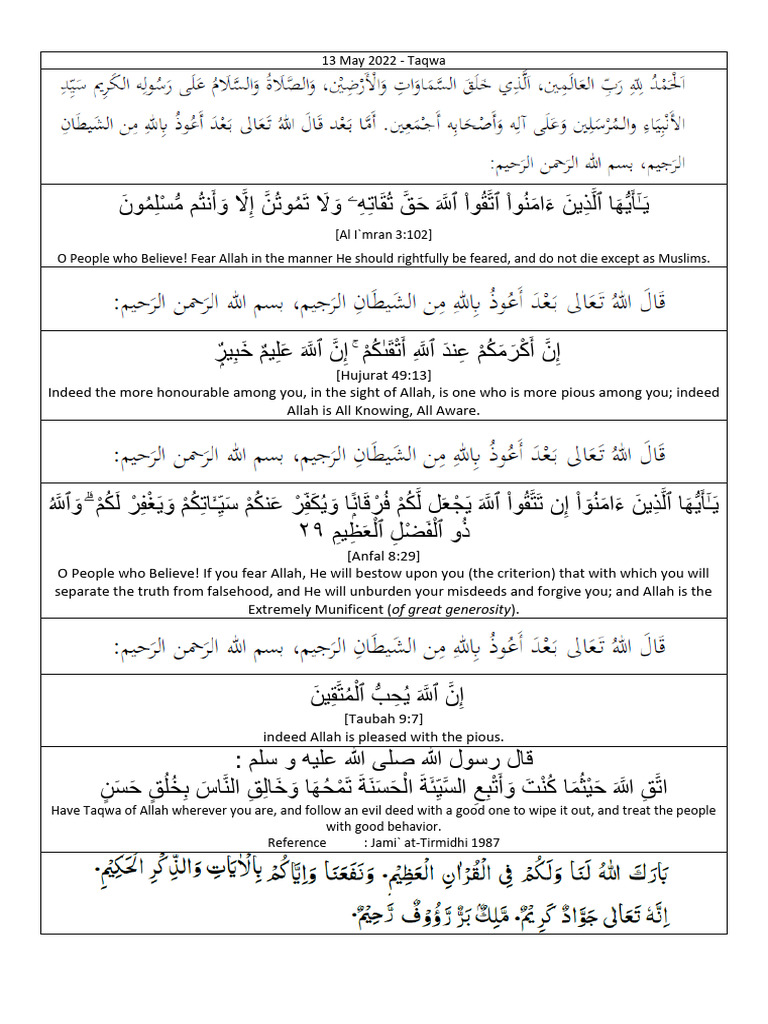 13 May 2022 - Taqwa
اَلْحَمْدُ لِلّٰهِ رَبِّ العَالَمِين، اَلَّذِي خَلَقَ السَّمَاوَاتِ وَالْأَرْضِيْن، وَالصَّلَاةُ وَالسَّلَامُ عَلَى رَسُولِه الكَرِيم سَيِّدِ
الأَنْبِيَاءِ والـمُرْسَلِين وَعَلَى آلِه وَأَصْحَابِه أَجْمَعِين. أَمَّا بَعْد قَالَ اللهُ تَعَالى بَعْدَ أَعُوذُ بِاللهِ مِن الشَيطَانِ
الرَجيم، بسم الله الرَحمن الرَحيم:
يَـٰٓأَيُّهَا ٱلَّذِينَ ءَامَنُوا۟ ٱتَّقُوا۟ ٱللَّهَ حَقَّ تُقَاتِهِۦ وَلَا تَمُوتُنَّ إِلَّا وَأَنتُم مُّسْلِمُونَ
[Al I`mran 3:102]
O People who Believe! Fear Allah in the manner He should rightfully be feared, and do not die except as Muslims.
قَالَ اللهُ تَعَالى بَعْدَ أَعُوذُ بِاللهِ مِن الشَيطَانِ الرَجيم، بسم الله الرَحمن الرَحيم:
إِنَّ أَكْرَمَكُمْ عِندَ ٱللَّهِ أَتْقَىٰكُمْ ۚ إِنَّ ٱللَّهَ عَلِيمٌ خَبِيرٌۭ
[Hujurat 49:13]
Indeed the more honourable among you, in the sight of Allah, is one who is more pious among you; indeed
Allah is All Knowing, All Aware.
قَالَ اللهُ تَعَالى بَعْدَ أَعُوذُ بِاللهِ مِن الشَيطَانِ الرَجيم، بسم الله الرَحمن الرَحيم:
يَـٰٓأَيُّهَا ٱلَّذِينَ ءَامَنُوٓا۟ إِن تَتَّقُوا۟ ٱللَّهَ يَجْعَل لَّكُمْ فُرْقَانًۭا وَيُكَفِّرْ عَنكُمْ سَيِّـَٔاتِكُمْ وَيَغْفِرْ لَكُمْ ۗ وَٱللَّهُ
ذُو ٱلْفَضْلِ ٱلْعَظِيمِ ٢٩
[Anfal 8:29]
O People who Believe! If you fear Allah, He will bestow upon you (the criterion) that with which you will
separate the truth from falsehood, and He will unburden your misdeeds and forgive you; and Allah is the
Extremely Munificent (of great generosity).
قَالَ اللهُ تَعَالى بَعْدَ أَعُوذُ بِاللهِ مِن الشَيطَانِ الرَجيم، بسم الله الرَحمن الرَحيم:
إِنَّ ٱللَّهَ يُحِبُّ ٱلْمُتَّقِينَ
[Taubah 9:7]
indeed Allah is pleased with the pious.
قال رسول الله صلى الله عليه و سلم :
اتَّقِ اللَّهَ حَيْثُمَا كُنْتَ وَأَتْبِعِ السَّيِّئَةَ الْحَسَنَةَ تَمْحُهَا وَخَالِقِ النَّاسَ بِخُلُقٍ حَسَنٍ
Have Taqwa of Allah wherever you are, and follow an evil deed with a good one to wipe it out, and treat the people
with good behavior.
Reference : Jami` at-Tirmidhi 1987
بَارَكَ اللهُ لَنَا وَلَكُمْ فِي الْقُرْاٰنِ الْعَظِيْمِ. وَنَفَعَنَا وَاِيَّاكُمْ بِالْاٰيَاتِ وَالذِّكْرِ الْحَكِيْمِ.
اِنَّهٗ تَعَالٰى جَوَّادٌ كَرِيْمٌ. مَّلِكٌ بَرٌّ رَّؤُوْفٌ رَّحِيْمٌ.